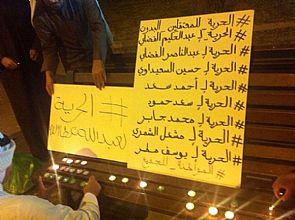 #الحرية المعتقلين البدون
#الحرية لـ عبدالحكيم الفضلي
#الحرية لـ عبدالناصر الفضلي
#الحرية لـ حسين السعيداوي
#الحرية لـ أحمد سعد
#الحرية لـ سعد حمود
#الحرية لـ محمد جابر
#الحرية لـ مشعل الشمري
#الحرية لـ يوسف مطر
#المواطنة للجميع
#الحرية
لعبدالله